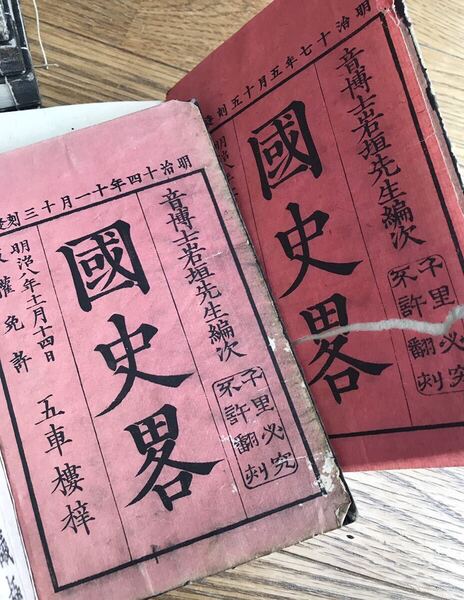 明治十四年十一月十三刻
音博士岩垣先生編次
千里必究
不許翻刻
國史畧
明治八年十二月十四日
權免許
五車樓梓
明治十七年五月十五刻
音博士岩垣先生編次
千里必究
不許翻刻
國史畧
明治